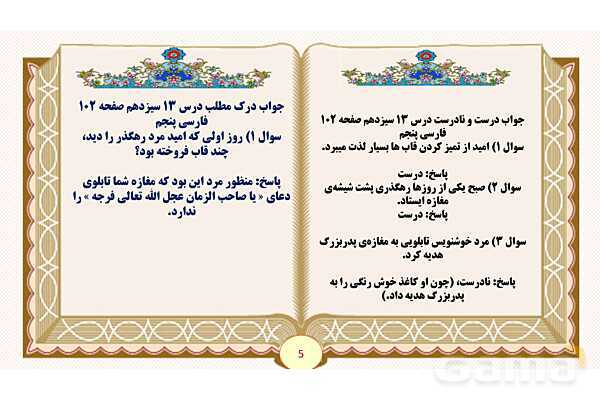 جواب درست و نادرست درس ۱۳ سیزدهم صفحه ۱۰۲
فارسی پنجم
سوال ۱) امید از تمیز کردن قاب ها بسیار لذت میبرد.
پاسخ: درست
سوال ۲) صبح یکی از روزها رهگذری پشت شیشه‌ی
مغازه ایستاد.
پاسخ: درست
سوال ۳) مرد خوشنویس تابلویی به مغازه‌ی پدربزرگ
هدیه کرد.
پاسخ: نادرست، (چون او کاغذ خوش رنگی را به
پدربزرگ هدیه داد.)
جواب درک مطلب درس ۱۳ سیزدهم صفحه ۱۰۲
فارسی پنجم
سوال ۱) روز اولی که امید مرد رهگذر را دید،
چند قاب فروخته بود؟
پاسخ: منظور مرد این بود که مغازه شما تابلوی
دعای « یا صاحب الزمان عجل الله تعالی فرجه » را
ندارد.
5
Gama